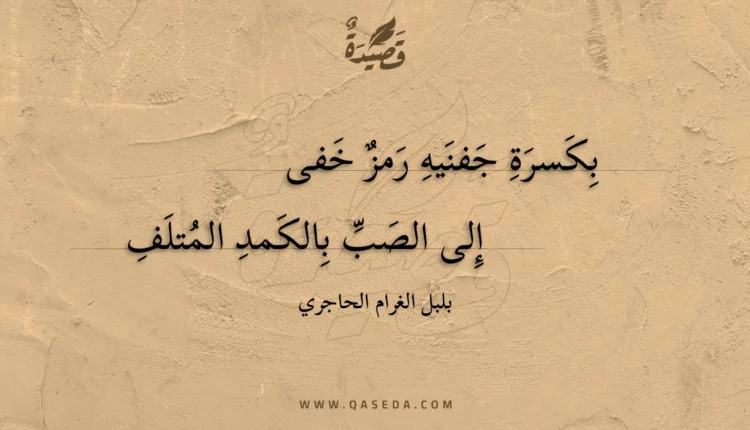 قَصِيْدَةٌ
بِكَسرَةِ جَفنَيهِ رَمزٌ خَفى
إِلى الصَبِّ بِالكَمدِ المُتلَفِ
بلبل الغرام الحاجري
WWW.QASEDA.COM